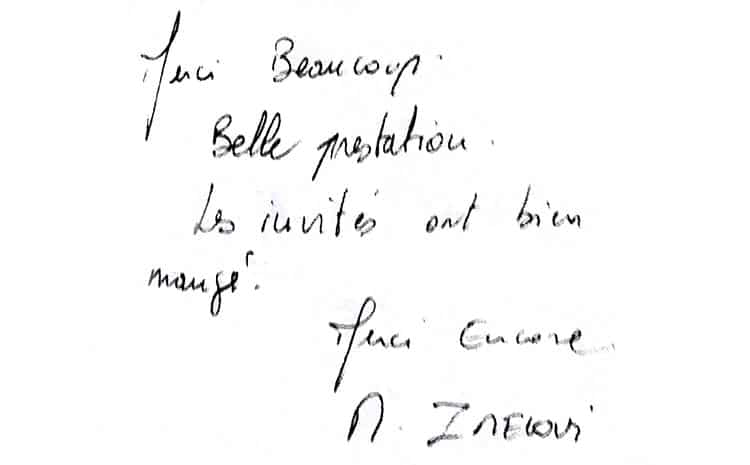 Merci Beaucoup.
Belle prestation.
Les invités ont bien
mangé.
Merci Encore
M.